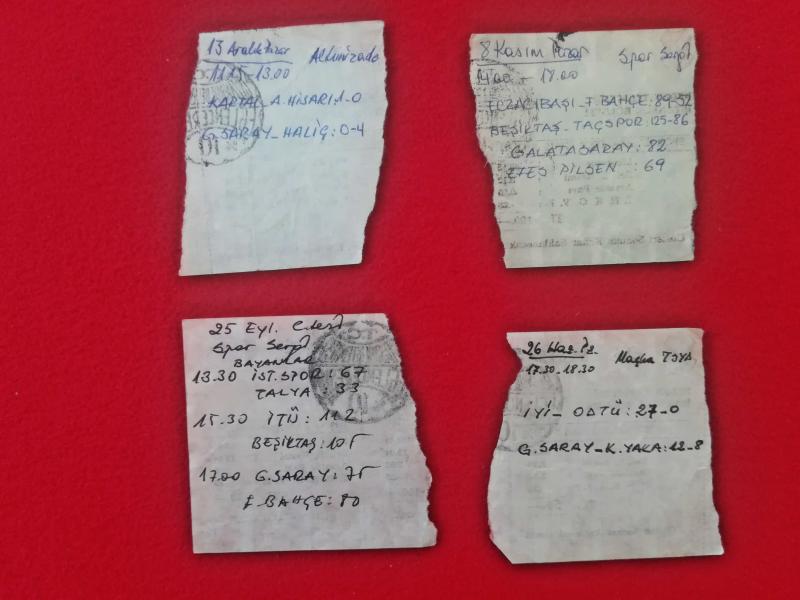 13 Aralık Pazar Altunizade
11.15-13.00
KARTAL-A.HİSARI:1-0
G.SARAY-HALİÇ:0-4
8 Kasım Pazar Spor Sergi
14.00-18.00
ECZACIBAŞI-F.BAHÇE:89-52
BEŞİKTAŞ-TAÇSPOR:125-86
GALATASARAY:82
EFES PİLSEN:69
25 Eyl. C.tesi
Spor Sergi
BAYANLAR
13.30 İST.SPOR:67
TALYA:33
15.30 İTÜ:112
BEŞİKTAŞ:105
17.00 G.SARAY:75
F.BAHÇE:80
26 Haz. Pz.
17.30-18.30 Maçka
İYİ-ODTÜ:27-0
G.SARAY-K.YAKA:12-8